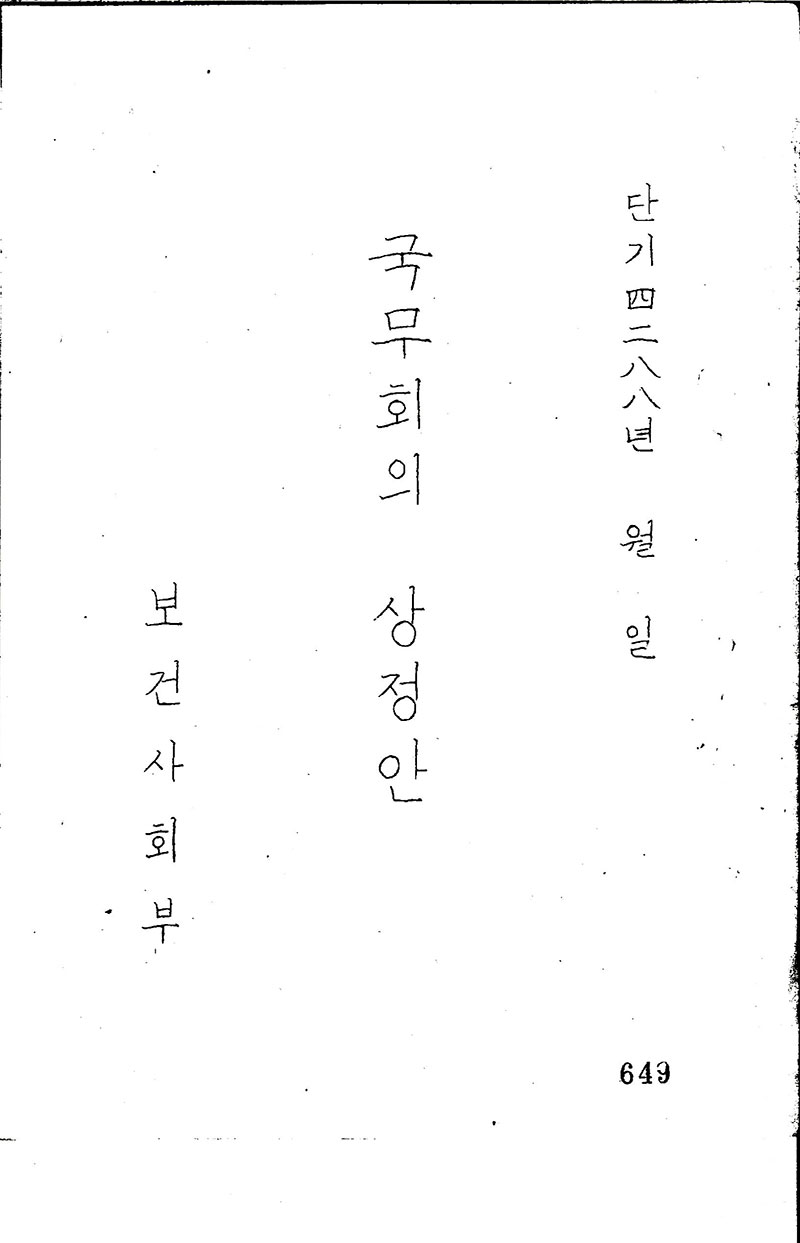 단기四二八八년 월 일
국무회의 상정안
보건사회부
649